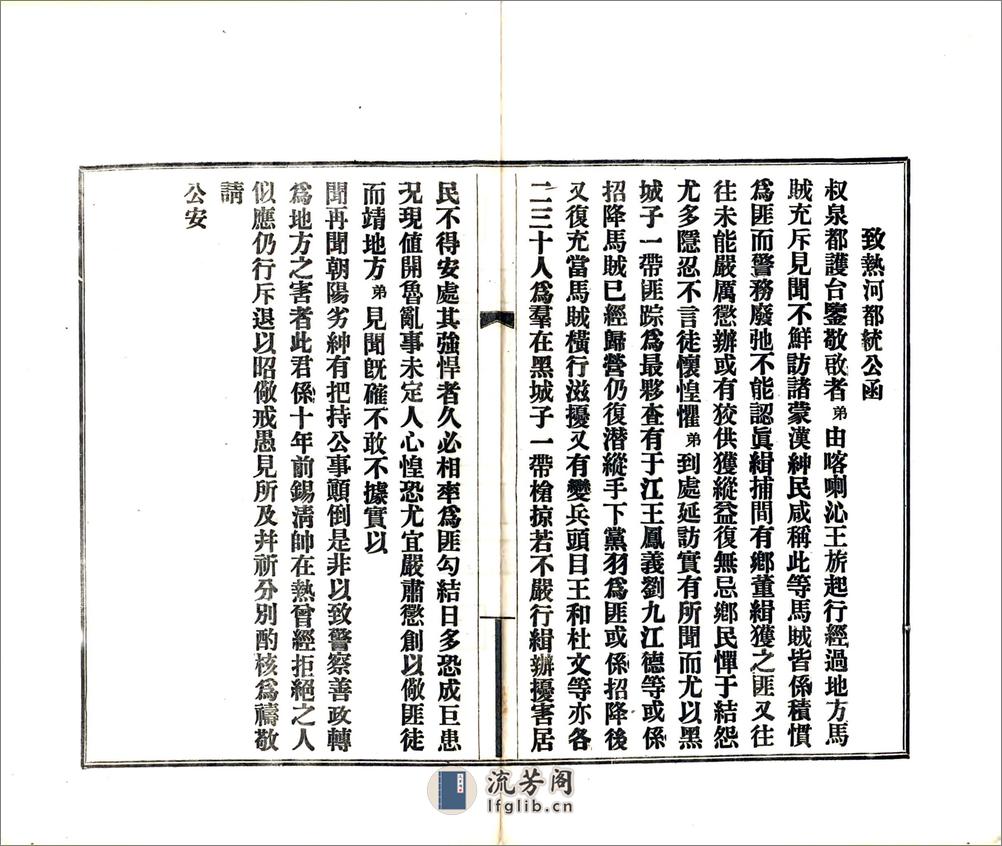 致熱河都統公函
叔泉都護台鑒敬啟者弟由喀喇沁王旂起行經過地方馬
賊充斥見聞不鮮訪諸蒙漢紳民咸稱此等馬賊皆係積慣
爲匪而警務廢弛不能認眞緝捕間有鄉董緝獲之匪又往
往未能嚴厲懲辦或有狡供獲縱益復無忌鄉民憚于結怨
尤多隱忍不言徒懷惶懼弟到處延訪實有所聞而尤以黑
城子一帶匪踪爲最夥查有于江王鳳義劉九江德等或係
招降馬賊已經歸營仍復潛縱手下黨羽爲匪或係招降後
又復充當馬賊橫行滋擾又有變兵頭目王和杜文等亦各
二三十人爲羣在黑城子一帶槍掠若不嚴行緝辦擾害居
民不得安處其強悍者久必相率爲匪勾結日多恐成巨患
況現値開魯亂事未定人心惶恐尤宜嚴肅懲創以儆匪徒
而靖地方弟見聞旣確不敢不據實以
聞再聞朝陽劣紳有把持公事顚倒是非以致警察善政轉
爲地方之害者此君係十年前錫淸帥在熱曾經拒絕之人
似應仍行斥退以昭儆戒愚見所及幷祈分別酌核爲禱敬
請
公安
流芳阁
lfglib.cn